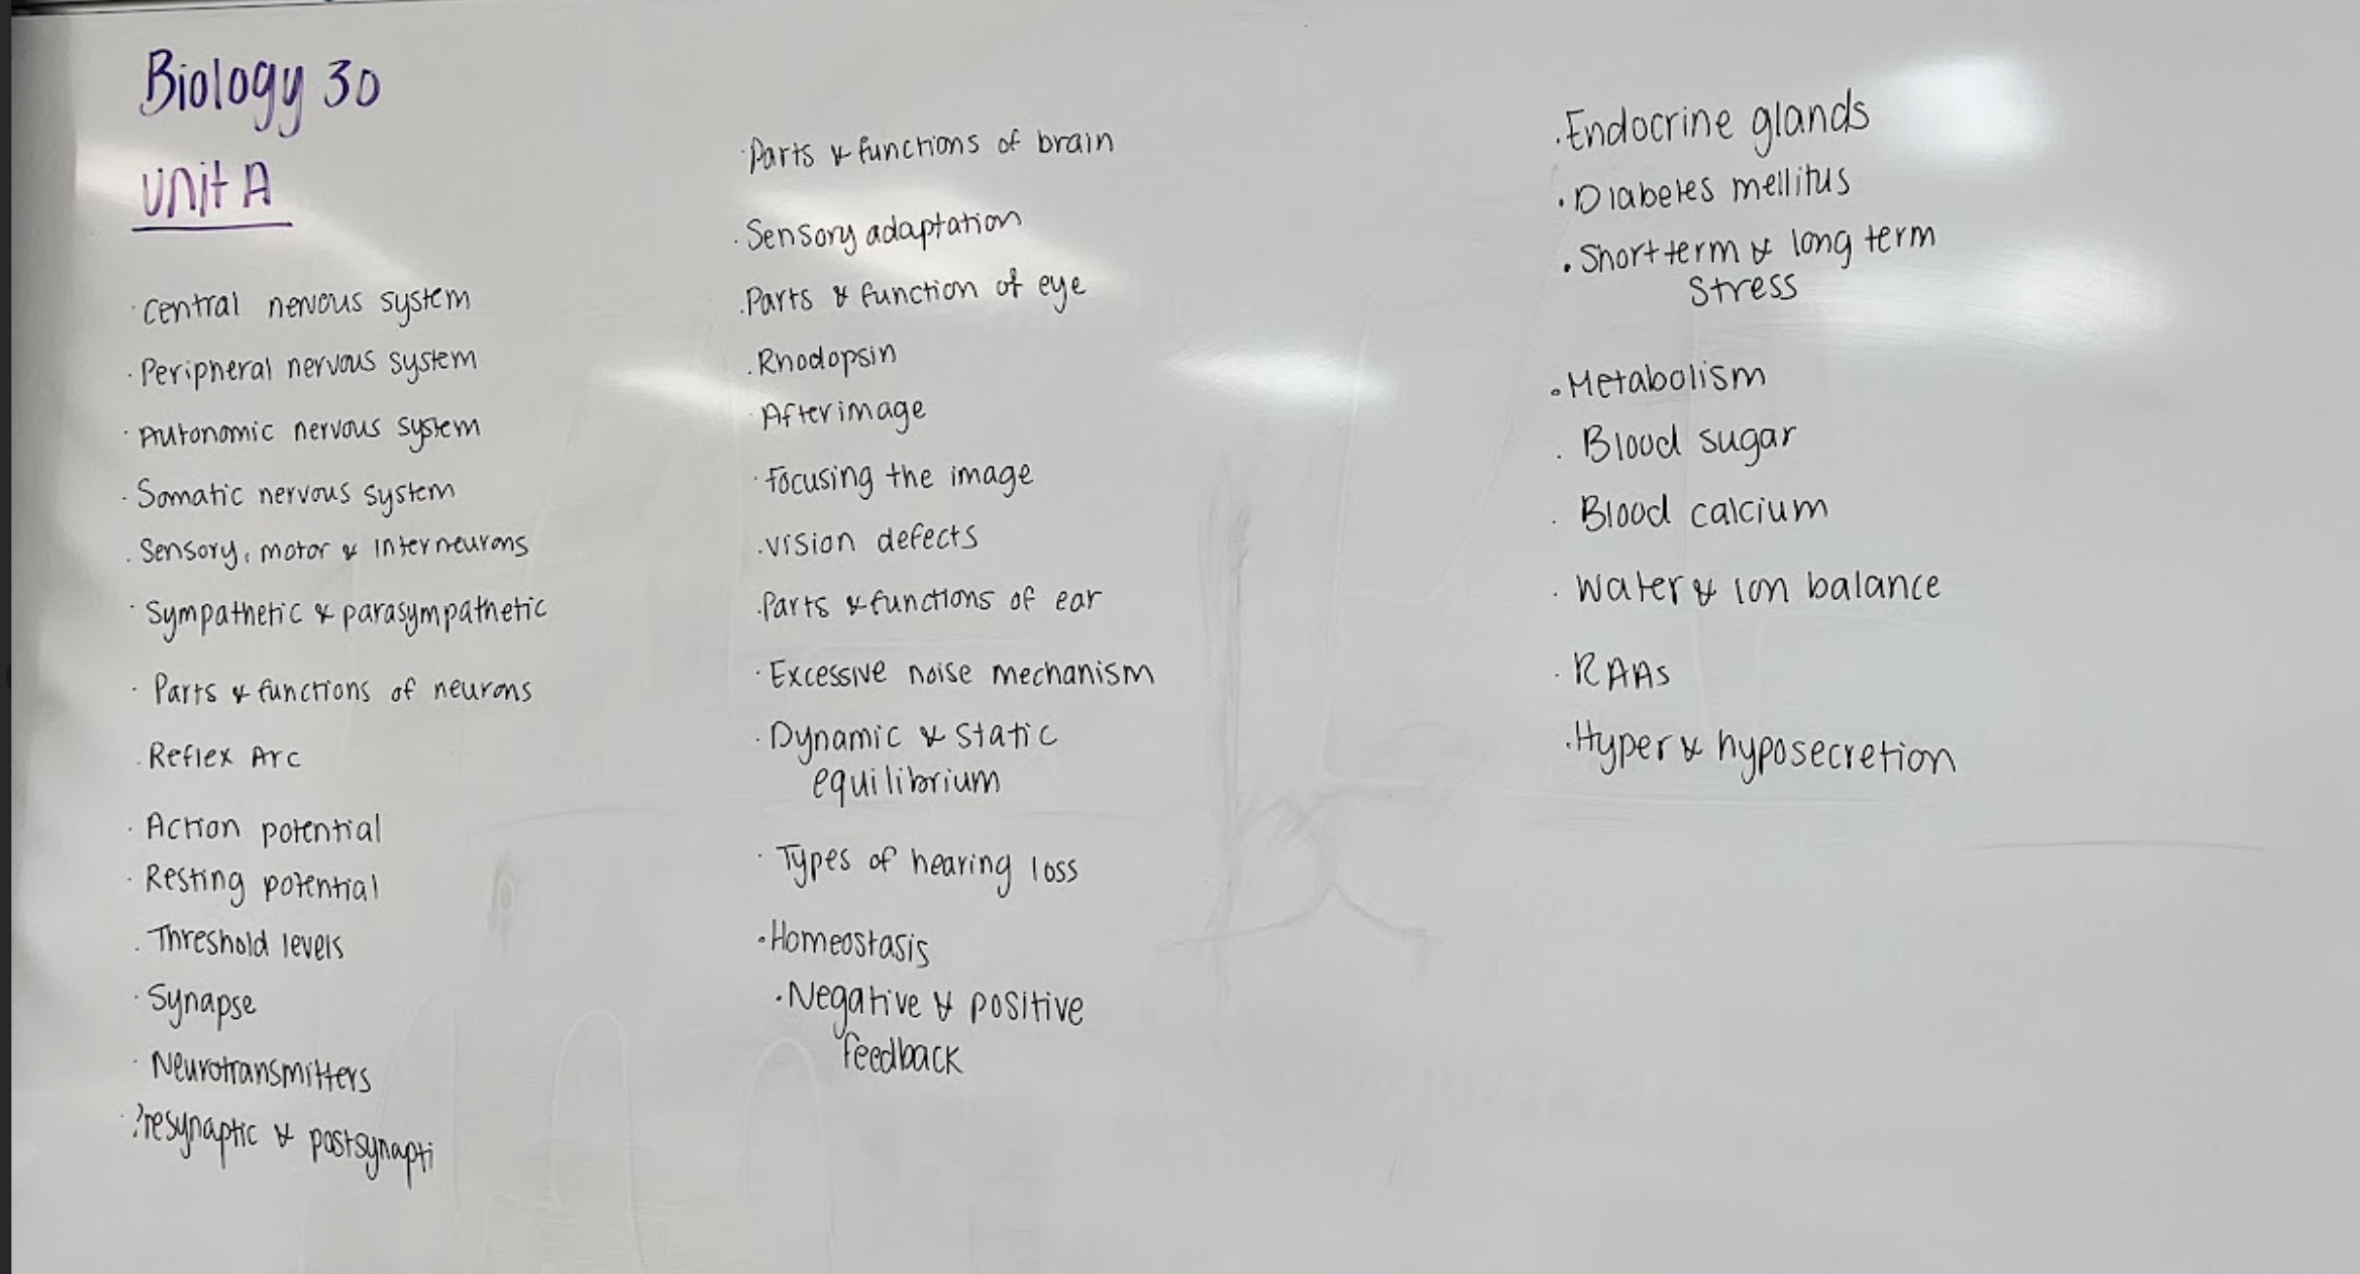 Biology 30
Unit A
· Central nervous system
· Peripheral nervous system
· Autonomic nervous system
· Somatic nervous system
· Sensory, motor & interneurons
· Sympathetic & parasympathetic
· Parts & functions of neurons
· Reflex Arc
· Action potential
· Resting potential
· Threshold levels
· Synapse
· Neurotransmitters
· Presynaptic & postsynapti
· Parts & functions of brain
· Sensory adaptation
· Parts & function of eye
· Rhodopsin
· Afterimage
· Focusing the image
· Vision defects
· Parts & functions of ear
· Excessive noise mechanism
· Dynamic & static
equilibrium
· Types of hearing loss
· Homeostasis
· Negative & positive
feedback
· Endocrine glands
· Diabetes mellitus
· Short term & long term
Stress
· Metabolism
· Blood sugar
· Blood calcium
· Water & ion balance
· RAAs
· Hyper & hyposecretion